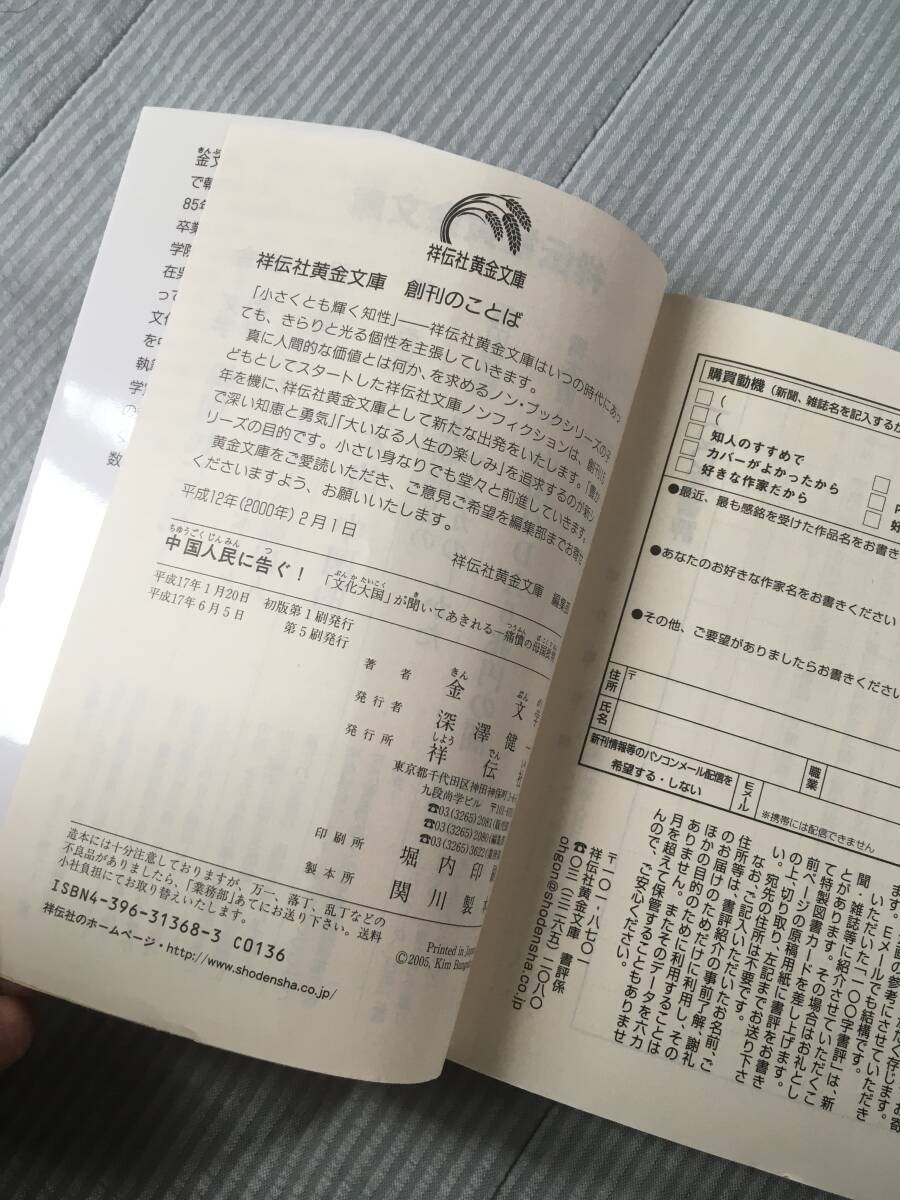 祥伝社黄金文庫
祥伝社黄金文庫 創刊のことば
「小さくとも輝く知性」――祥伝社黄金文庫はいつの時代にあっ
ても、きらりと光る個性を主張していきます。
真に人間的な価値とは何か、を求めるノン・ブックシリーズの子
どもとしてスタートした祥伝社文庫ノンフィクションは、創刊15
年を機に、祥伝社黄金文庫として新たな出発をいたします。「豊か
で深い知恵と勇気」「大いなる人生の楽しみ」を追求するのが新シ
リーズの目的です。小さい身なりでも堂々と前進していきます。
黄金文庫をご愛読いただき、ご意見ご希望を編集部までお寄せ
くださいますよう、お願いいたします。
平成12年(2000年)2月1日
祥伝社黄金文庫 編集部
ちゅうごくじんみん つ
中国人民に告ぐ!
ぶんかたいこく き つうふん ぼこく
「文化大国」が聞いてあきれる―痛憤の母国
平成17年1月20日 初版第1刷発行
平成17年6月5日 第5刷発行
著者 金 文
きん ぶん
発行者 深澤健一
発行所 祥伝社
しょう でん
東京都千代田区神田神保町3-6-
九段尚学ビル 〒101-
☎03(3265)2081(販売
☎03(3265)2080(編集
☎03(3265)3622(業務
印刷所 堀内印
製本所 関川製
造本には十分注意しておりますが、万一、落丁、乱丁などの
不良品がありましたら、「業務部」あてにお送り下さい。送料
小社負担にてお取り替えいたします。
Printed in
ISBN4-396-31368-3 C0136
©2005, Kim
祥伝社のホームページ・http://www.shodensha.co.jp/
きん
金文
で朝
85年
卒業
学院
在
って
文化
を中
執
学
の
く
数
購買動機(新聞、雑誌名を記入するか
(
(
知人のすすめで
カバーがよかったから
好きな作家だから
●最近、最も感銘を受けた作品名をお書き
●あなたのお好きな作家名をお書きください
●その他、ご要望がありましたらお書きくださ
住所
〒
氏名
職業
新刊情報等のパソコンメール配信を
希望する・しない
Eメール
※携帯には配信できません
います。Eメールでも結構です。
いただいた「一〇〇字書評」は、新
聞、雑誌等に紹介させていただくこ
とがあります。その場合はお礼とし
て特製図書カードを差し上げます。
前ページの原稿用紙に書評をお書き
の上、切り取り、左記までお送り下さ
い。宛先の住所は不要です。
なお、ご記入いただいたお名前、ご
住所等は、書評紹介の事前了解、謝礼
のお届けのためだけに利用し、その
ほかの目的のために利用することは
ありません。またそのデータを六カ
月を超えて保管することもありませ
んので、ご安心ください。
〒一〇一‐八七〇一
祥伝社黄金文庫 書評係
☎〇三(三二六五)二〇八〇
ohgon@shodensha.co.jp